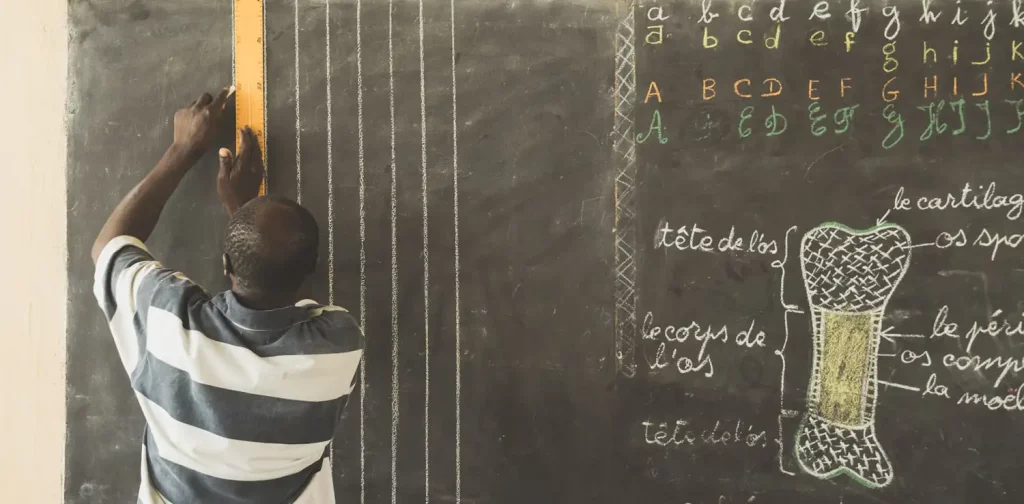 a b c d e f g h i j k
a b c d e f g h i j k
A B C D E F G H I J K
A B C D E F G H I J K
le cartilag
tête de l'os
os spo
le corps de
l'os
le péri
os comp
la moël
tête de l'os